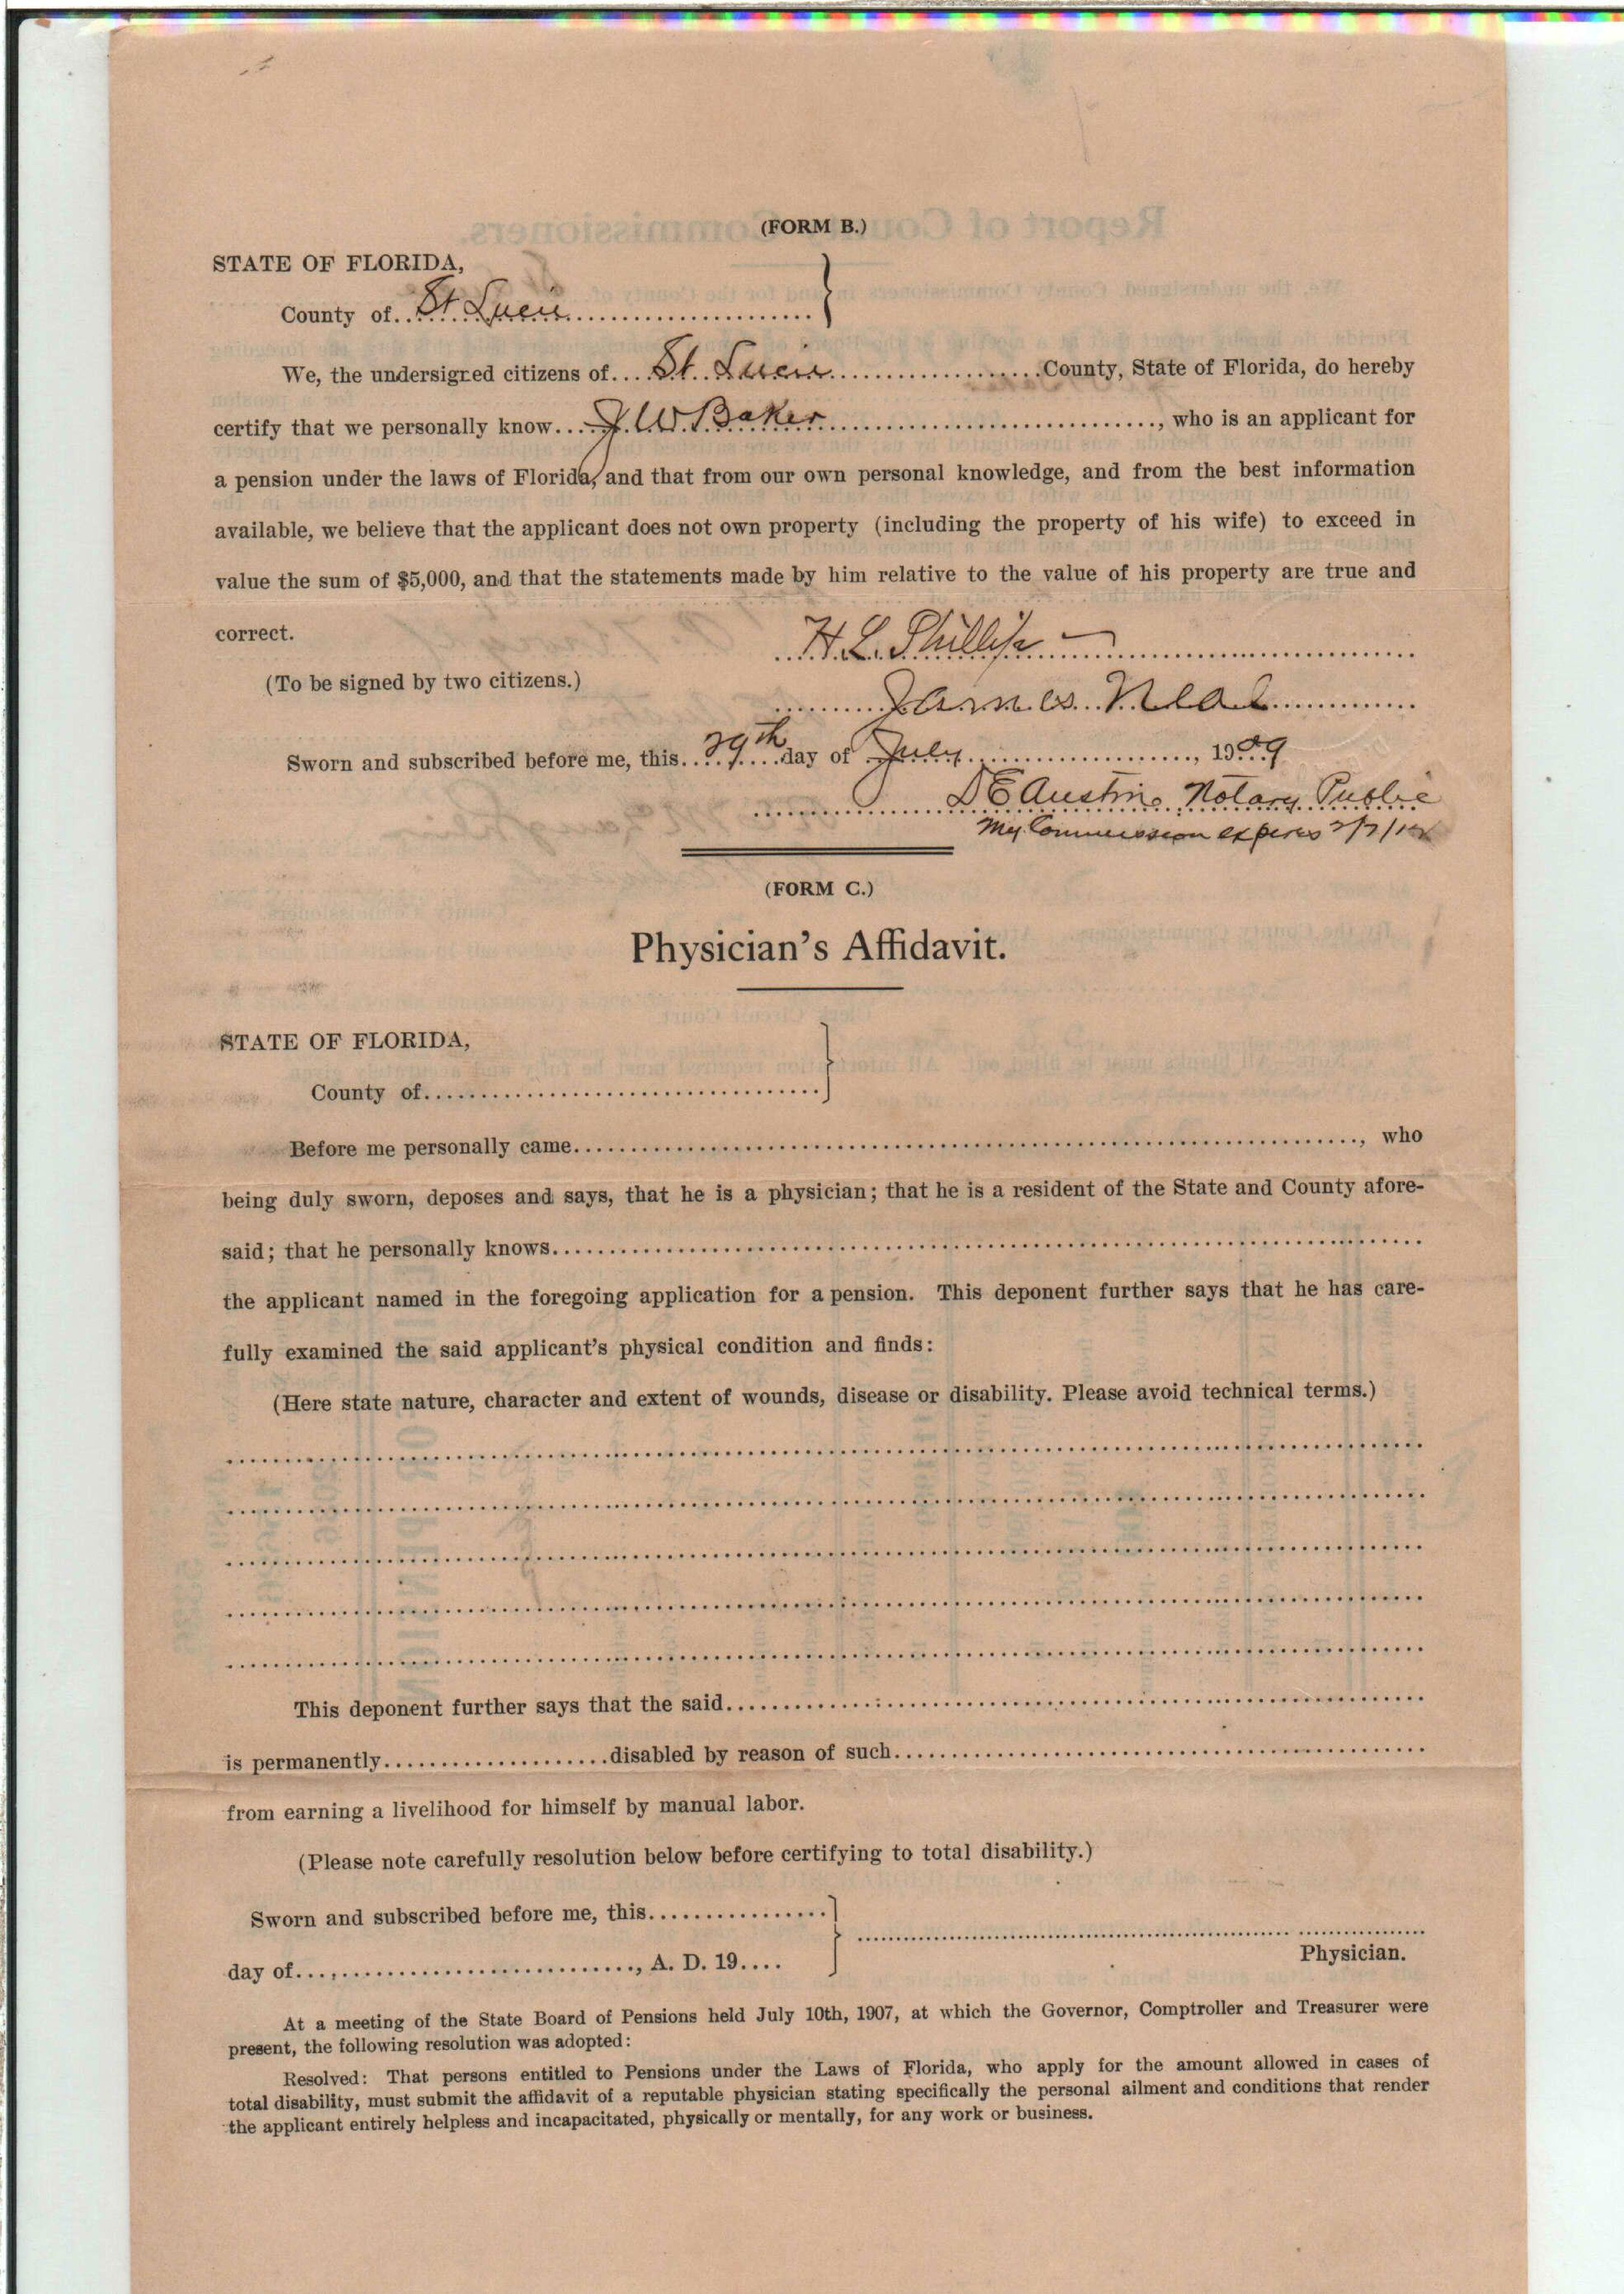 (FORM B.)
STATE OF FLORIDA,
County of St. Lucie
We, the undersigned citizens of St. Lucie County, State of Florida, do hereby
certify that we personally know J. W. Baker, who is an applicant for
a pension under the laws of Florida, and that from our own personal knowledge, and from the best information
available, we believe that the applicant does not own property (including the property of his wife) to exceed in
value the sum of $5,000, and that the statements made by him relative to the value of his property are true and
correct.
H. L. Phillips
(To be signed by two citizens.)
James Neal
Sworn and subscribed before me, this 29th day of July, 1909
D E Austin, Notary Public
My Commission expires
(FORM C.)
Physician's Affidavit.
STATE OF FLORIDA,
County of
Before me personally came, who
being duly sworn, deposes and says, that he is a physician; that he is a resident of the State and County afore-
said; that he personally knows
the applicant named in the foregoing application for a pension. This deponent further says that he has care-
fully examined the said applicant's physical condition and finds:
(Here state nature, character and extent of wounds, disease or disability. Please avoid technical terms.)
This deponent further says that the said
is permanently disabled by reason of such
from earning a livelihood for himself by manual labor.
(Please note carefully resolution below before certifying to total disability.)
Sworn and subscribed before me, this
day of, A. D. 19
Physician.
At a meeting of the State Board of Pensions held July 10th, 1907, at which the Governor, Comptroller and Treasurer were
present, the following resolution was adopted:
Resolved: That persons entitled to Pensions under the Laws of Florida, who apply for the amount allowed in cases of
total disability, must submit the affidavit of a reputable physician stating specifically the personal ailment and conditions that render
the applicant entirely helpless and incapacitated, physically or mentally, for any work or business.